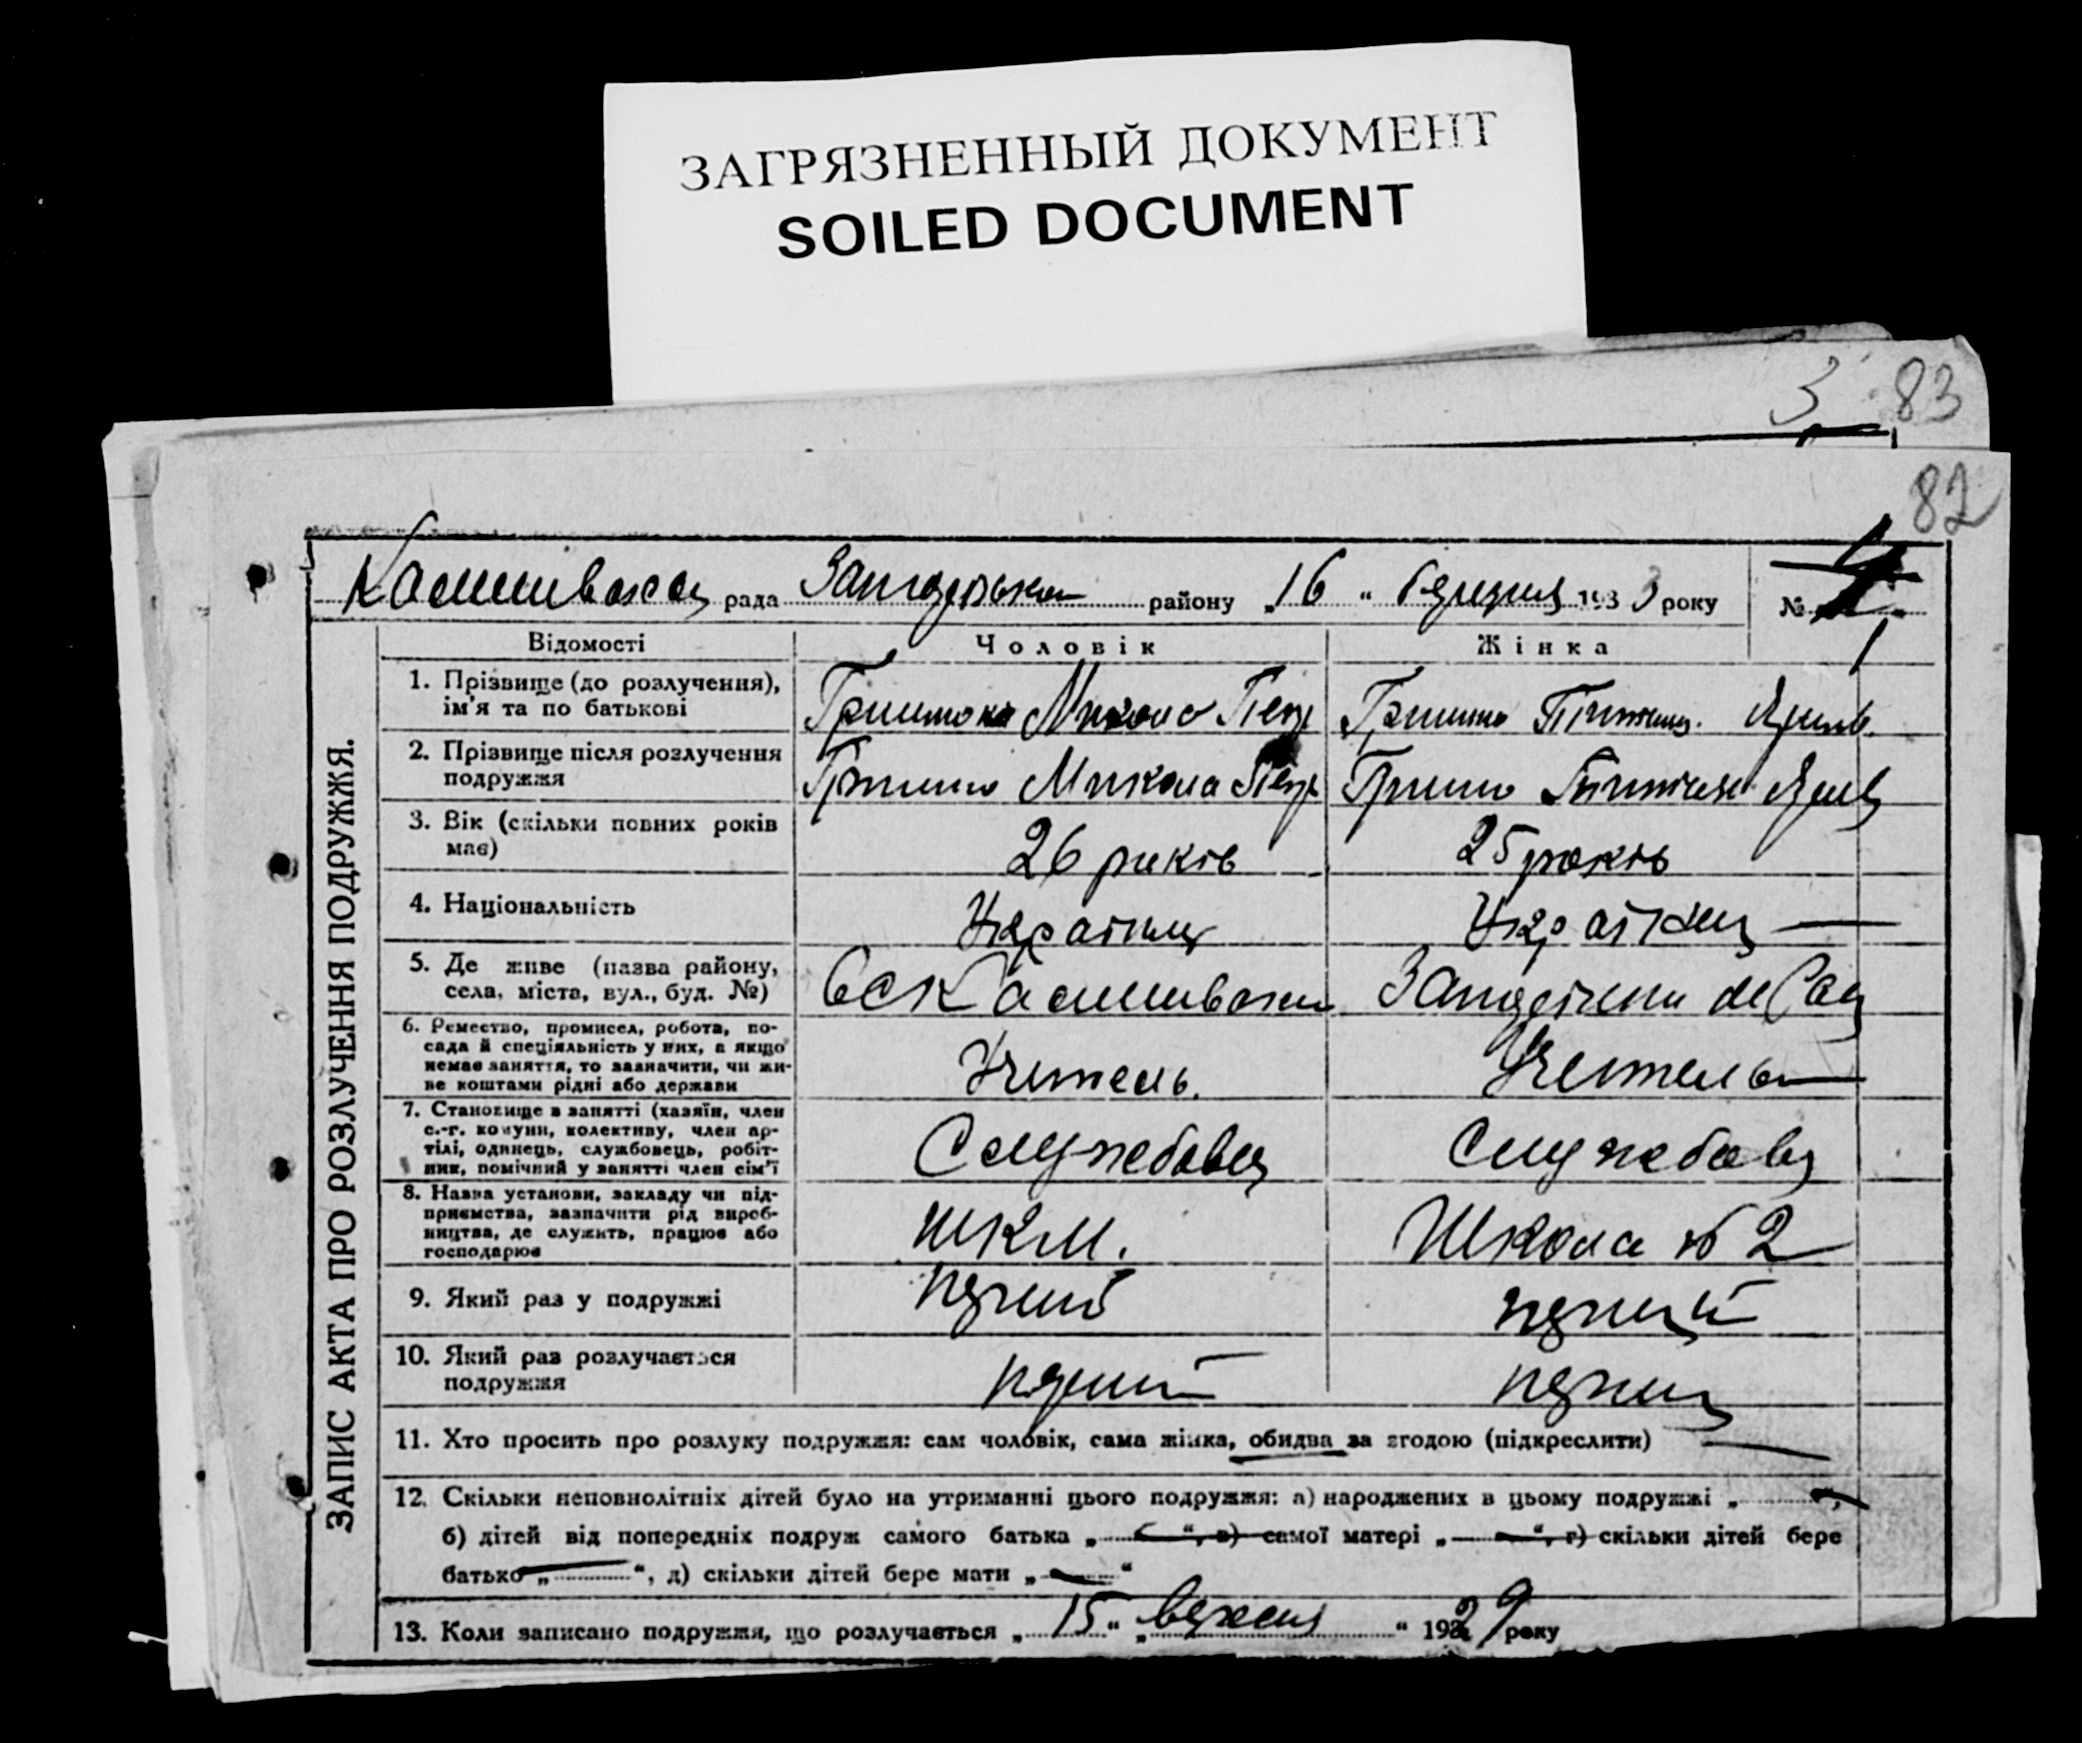 ЗАГРЯЗНЕННЫЙ ДОКУМЕНТ
SOILED DOCUMENT
3 83
82
рада району „16“ 1933 року №
1
Відомості Чоловік Жінка
ЗАПИС АКТА ПРО РОЗЛУЧЕННЯ ПОДРУЖЖЯ.
1. Прізвище (до розлучення),
ім'я та по батькові
Микола Петр
2. Прізвище після розлучення
подружжя
Микола Петр
3. Вік (скільки повних років
має)
26 років 25 років
4. Національність
Українц
5. Де живе (назва району,
села, міста, вул., буд. №)
6. Ремество, промисел, робота, по-
сада й спеціяльність у них, а якщо
немає заняття, то зазначити, чи жи-
ве коштами рідні або держави
Учитель. Учитель
7. Становище в занятті (хазяїн, член
с.-г. комуни, колективу, член ар-
тілі, одинець, службовець, робіт-
ник, помічний у занятті член сім'ї
Служебовец Служебовец
8. Назва установи, закладу чи під-
приємства, зазначити рід вироб-
ництва, де служить, працює або
господарює
ШКМ. Школа № 2
9. Який раз у подружжі
перший перший
10. Який раз розлучається
подружжя
перший перший
11. Хто просить про розлуку подружжя: сам чоловік, сама жінка, обидва за згодою (підкреслити)
12. Скільки неповнолітніх дітей було на утриманні цього подружжя: а) народжених в цьому подружжі „ “,
б) дітей від попередніх подруж самого батька „ “, в) самої матері „ “, г) скільки дітей бере
батько „ “, д) скільки дітей бере мати „ “
13. Коли записано подружжя, що розлучається „15“ „вересня“ 1929 року